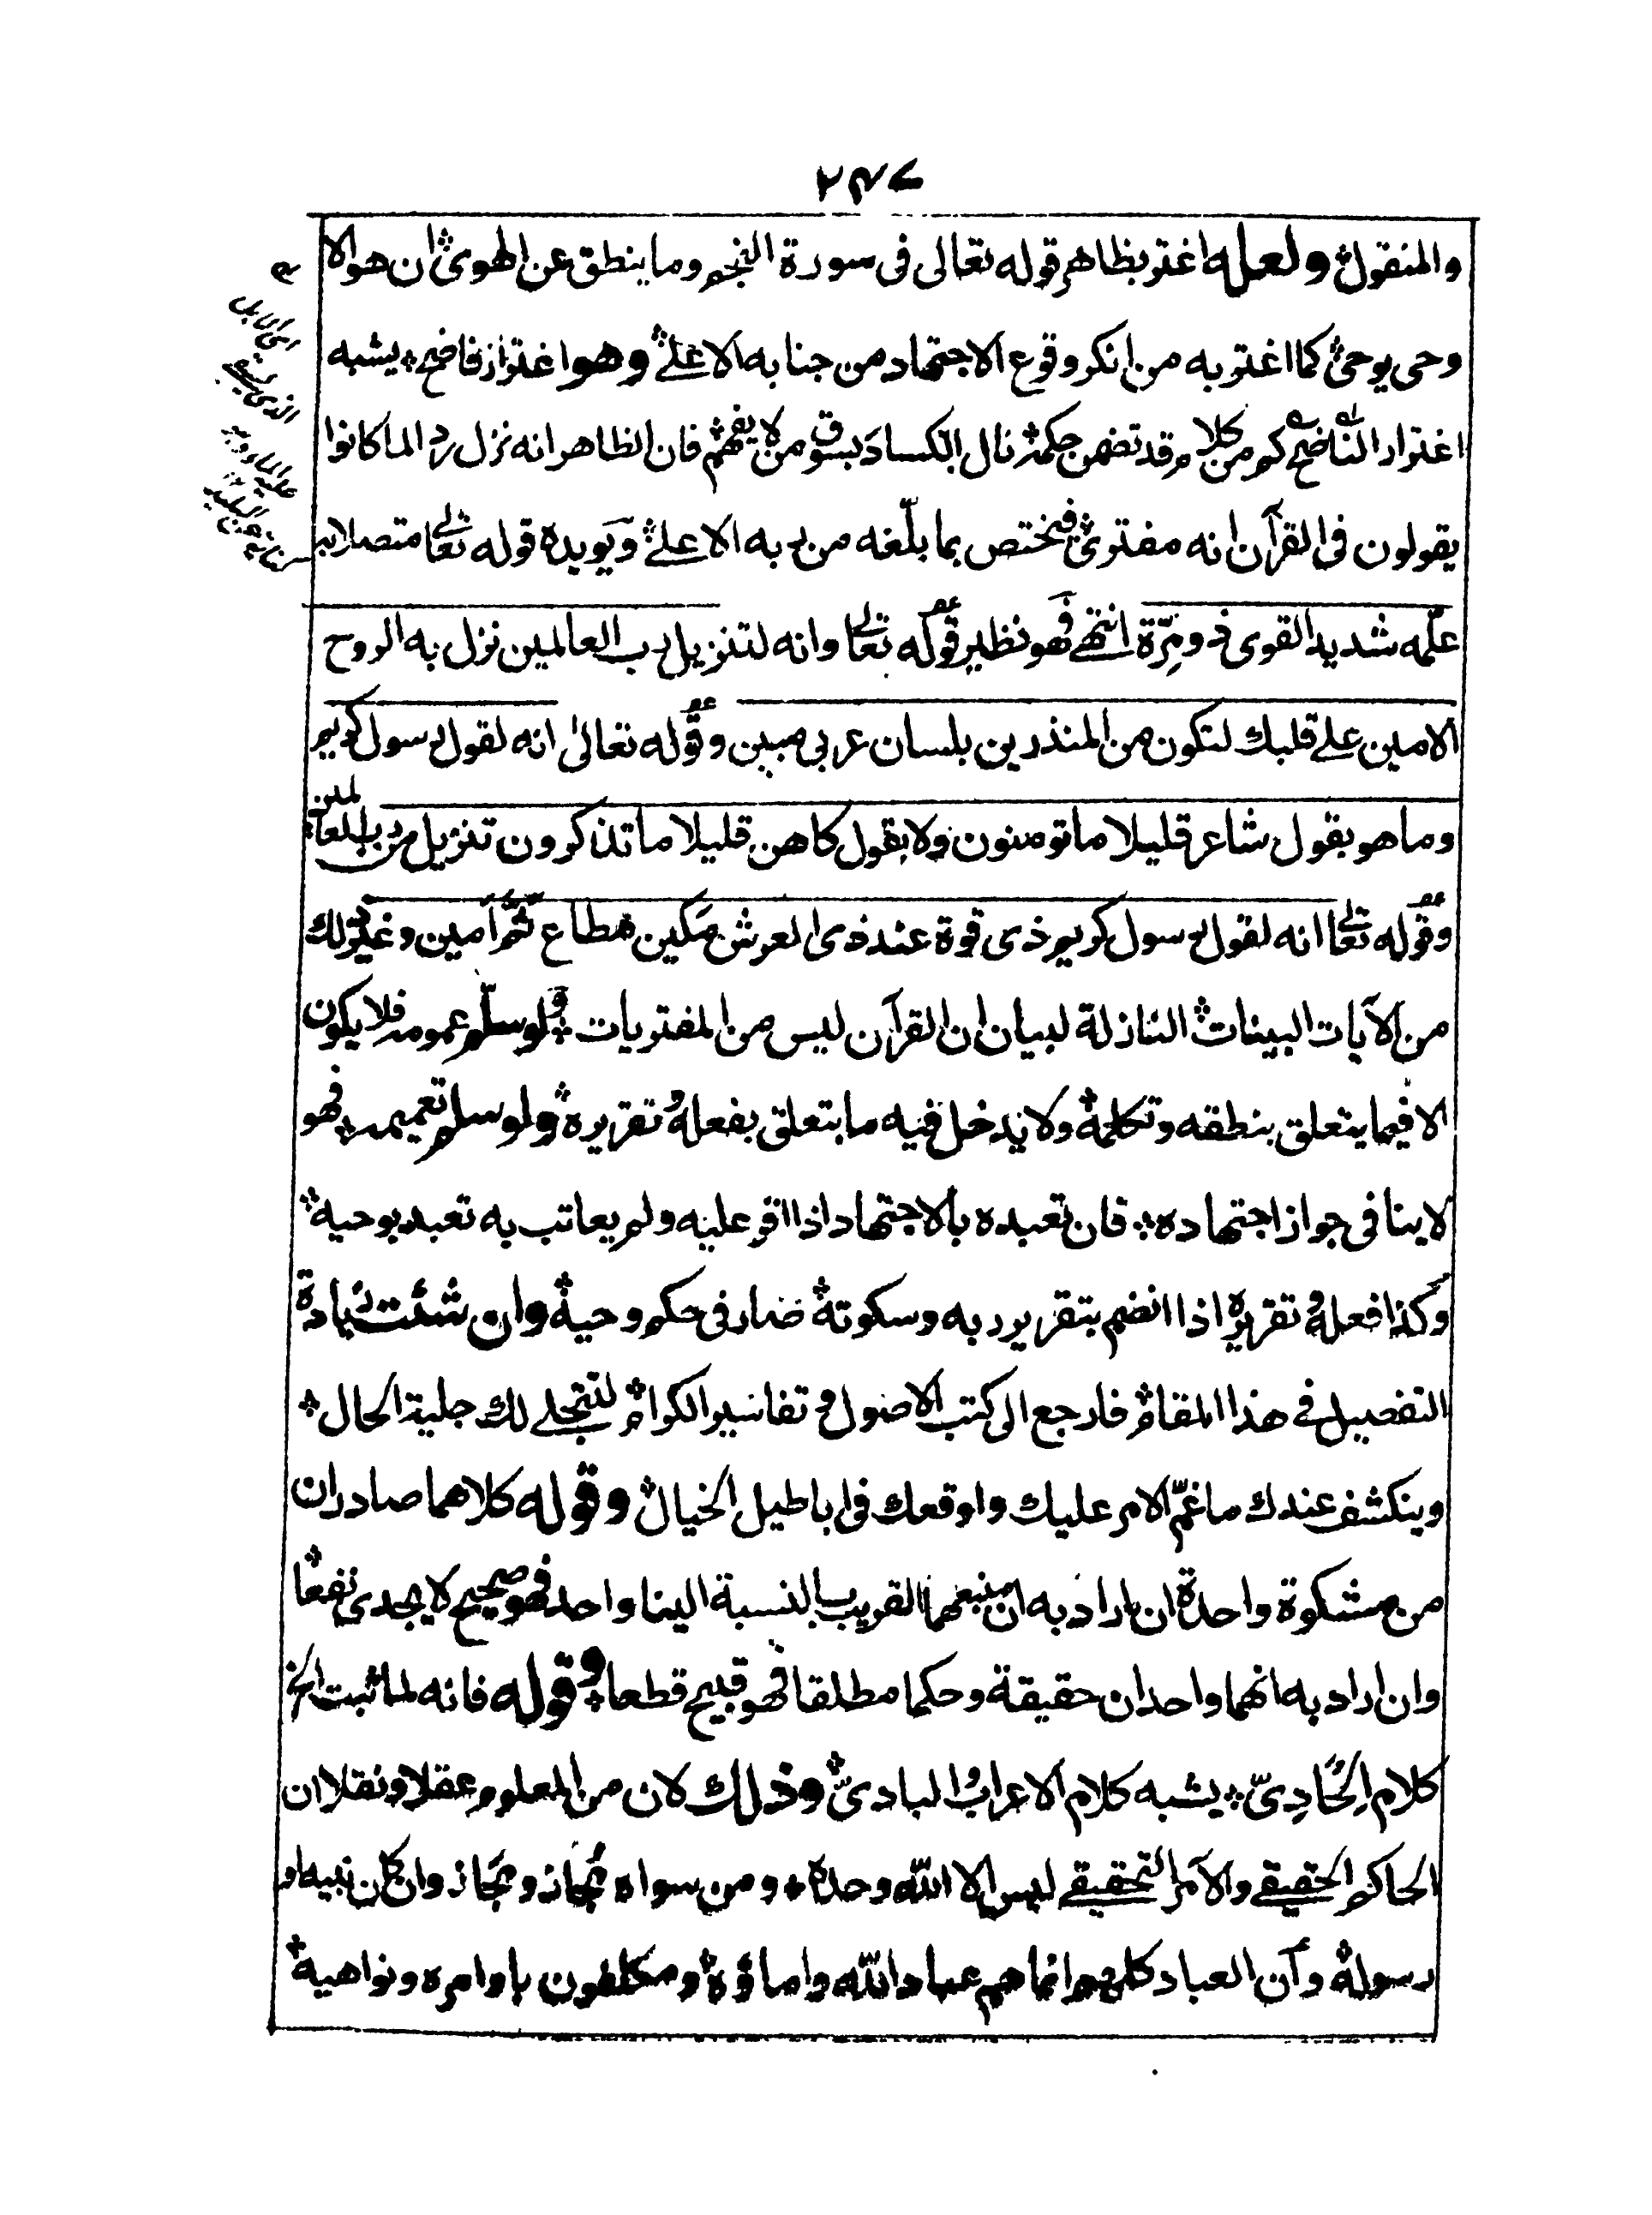 ٢٤٧
والمنقول ولعله اغتر بظاهر قوله تعالى فى سورة النجم وما ينطق عن الهوى ان هو الا
وحى يوحى كما اغتر به من انكر وقوع الاجتهاد من جنابه الاعلے وهو اغترار فاضح يشبه
اغترار الناضح كم من كلام قد تضمن حكمة نال الكساد بسوق من لا يفهم فان الظاهر انه نزل رد الما كانوا
يقولون فى القرآن انه مفترى فيختص بما بلّغه من ربه الاعلے ويويده قوله تعالى متصلا به
علّمه شديد القوى ذو مِرّة انتهے فهو نظير قوله تعالى وانه لتنزيل رب العالمين نزل به الروح
الامين علے قلبك لتكون من المنذرين بلسان عربى مبين وقوله تعالىٰ انه لقول رسول كريم
وما هو بقول شاعر قليلا ما تومنون ولا بقول كاهن قليلا ما تذكرون تنزيل من رب العالمين
وقوله تعالى انه لقول رسول كريم ذى قوة عند ذى العرش مكين مطاع ثَمّ امين وغير ذلك
من الآيات البينات النازلة لبيان ان القرآن ليس من المفتريات ولو سلّم عمومه فلا يكون
الا فيما يتعلق بنطقه وتكلمه ولا يدخل فيه ما يتعلق بفعله وتقريره ولو سلم تعميمه فهو
لا ينافى جواز اجتهاده فان تعبده بالاجتهاد اذا اقر عليه ولم يعاتب به تعبد بوحيه
وكذا فعله وتقريره اذا انضم بتقرير ربه وسكوته صار فى حكم وحيه وان شئت زيادة
التفصيل فے هذا المقام فارجع الى كتب الاصول وتفاسير الكرام لتتجلے لك جلية الحال
وينكشف عندك ما غمّ الامر عليك واوقعك فى اباطيل الخيال وقوله كلاهما صادران
من مشكوة واحدة ان اراد به ان منبعهما القريب بالنسبة الينا واحد فهو صحيح لا يجدى نفعا
وان اراد به انهما واحدان حقيقة وحكما مطلقا فهو قبيح قطعا وقوله فانه لما ثبت الخ
كلام الحَادِىّ يشبه كلام الاعراب البادىّ وذلك لان من المعلوم عقلا ونقلا ان
الحاكم الحقيقے والآمر التحقيقے ليس الا اللّٰه وحده ومن سواه مجاز ومجاز وان كان نبيه او
رسوله وآن العباد كلهم انما هم عباد اللّٰه واماؤه ومكلفون باوامره ونواهيه